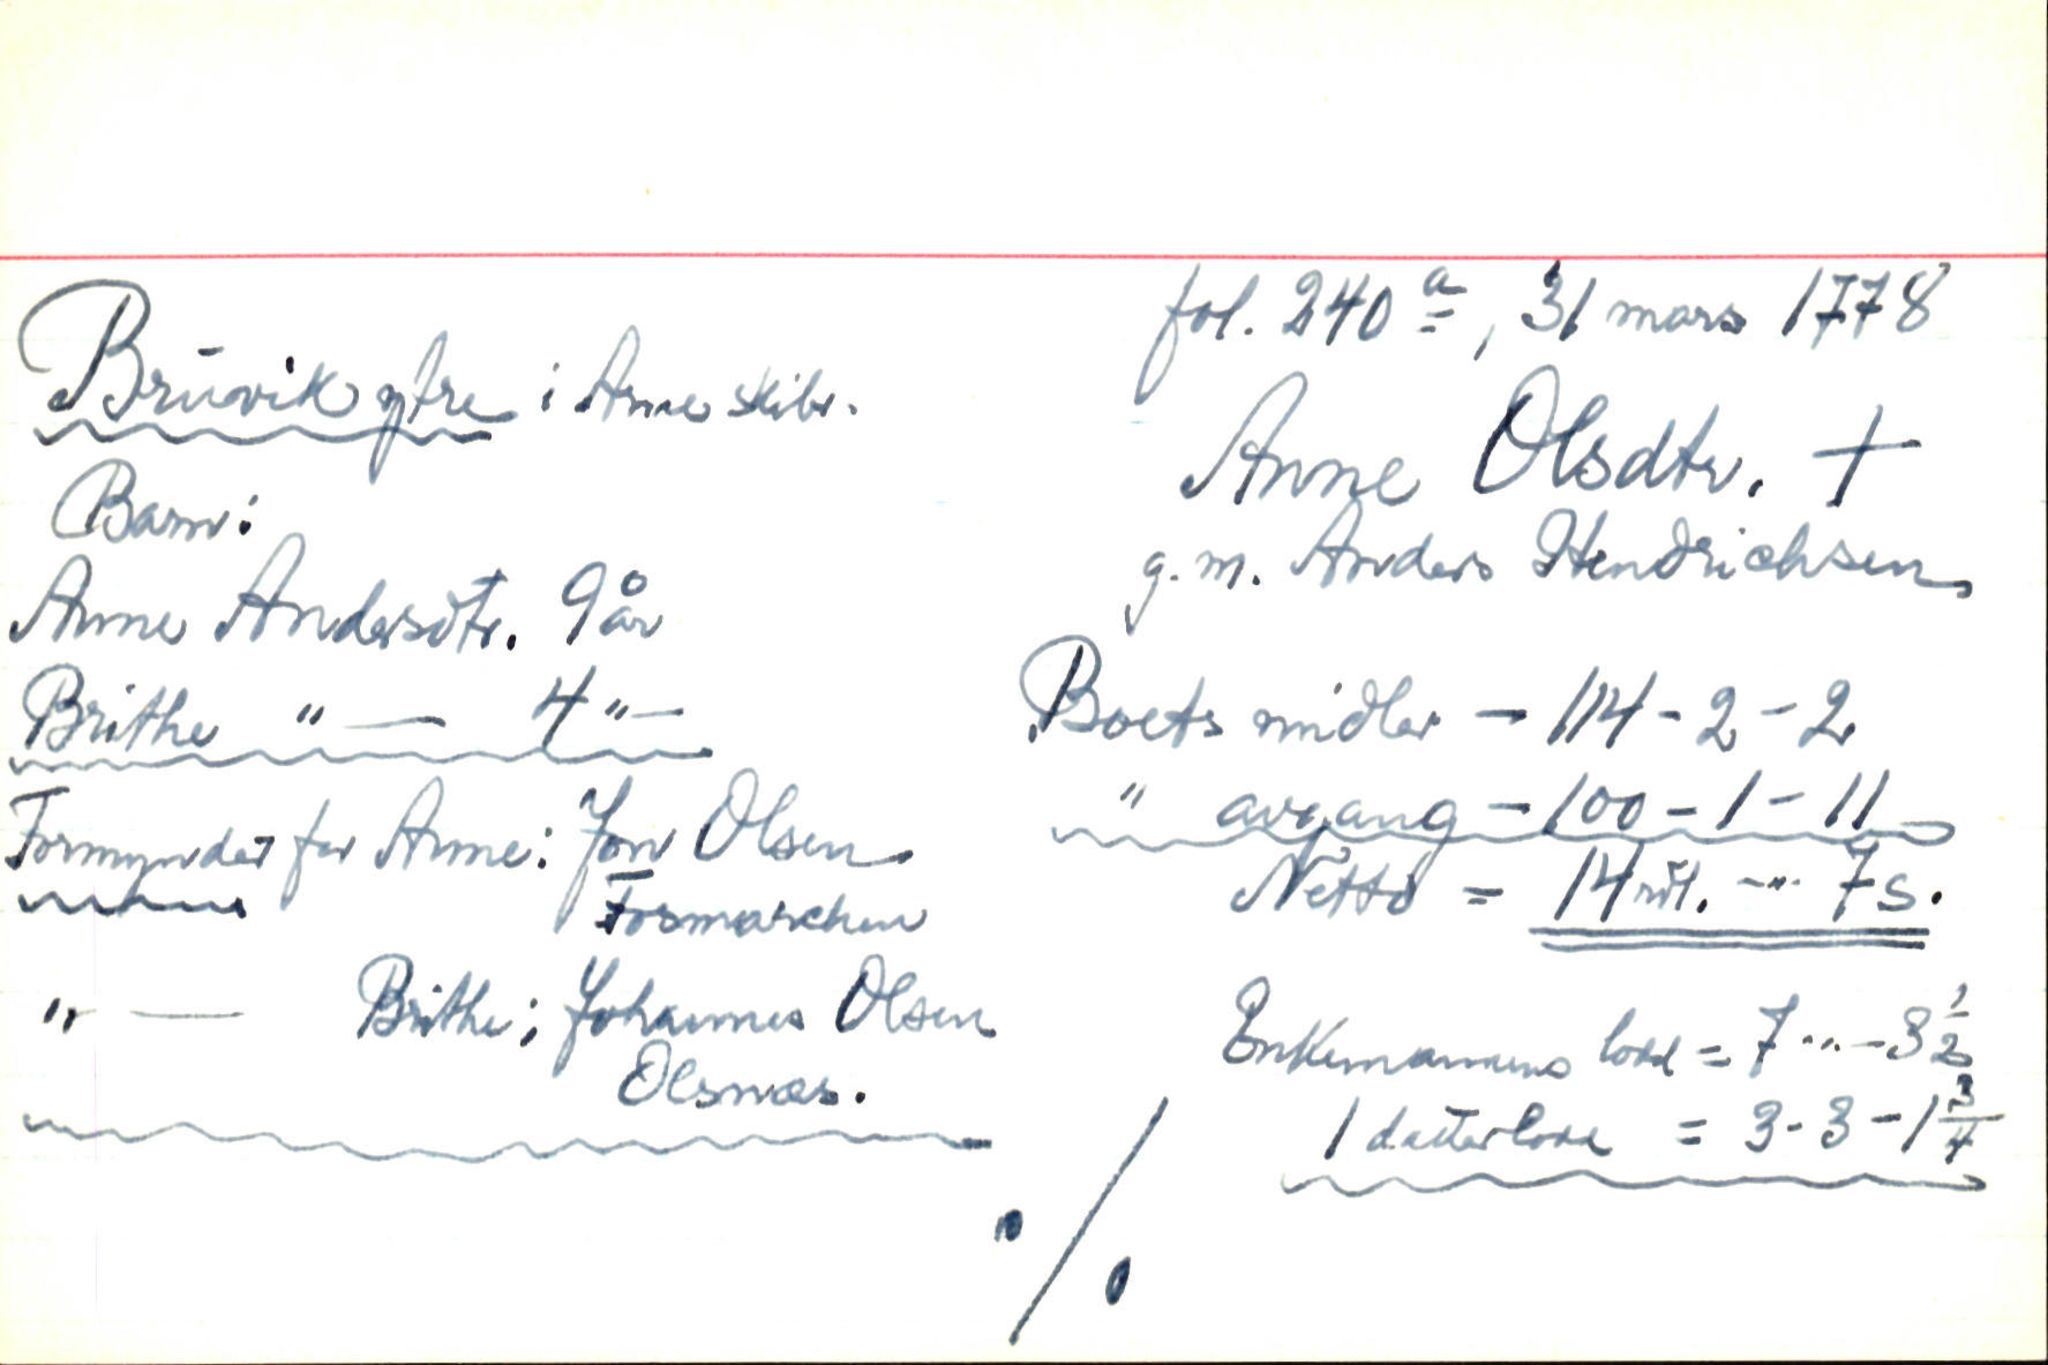 Brūvik ytre i Arne skibr.
Barn:
Anne Andersdtr. 9 år
Brithe " — 4 " —
Formynder for Anne: Jon Olsen
Fosmarchen
" — Brithe: Johannes Olsen
Olsnæs.
fol. 240 a, 31 mars 1778
Anne Olsdtr. †
g. m. Anders Hendrichsen
Boets midler - 114 - 2 - 2
" avgang - 100 - 1 - 11
Netto = 14 rdl. - " - 7 s.
Enkemannens lodd = 7 - " - 3 1/2
1 datterlodd = 3 - 3 - 1 3/4
./.